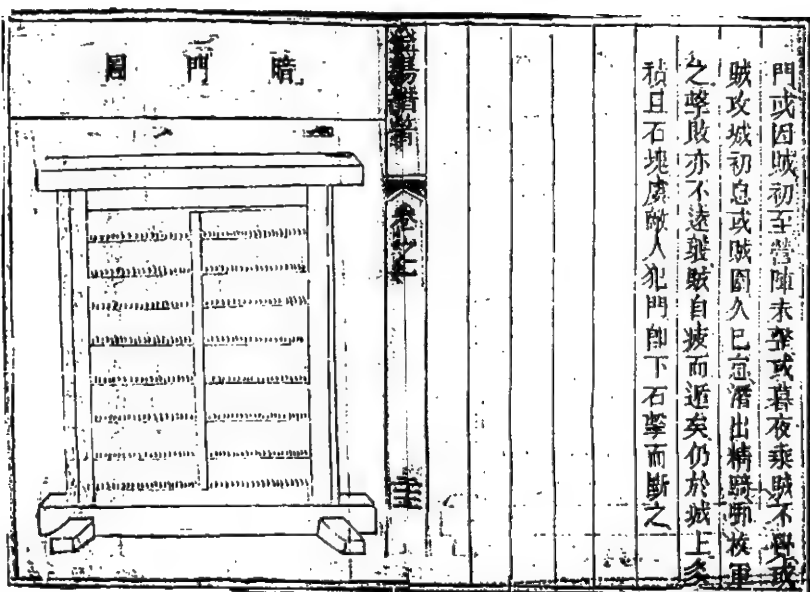 門或因賊初至營陣未整或暮夜乘賊不覺或
賊攻城初息或賊圍久已怠潛出精騎啣枚軍
之擊敗亦不遠襲賊自疲而遁矣仍於城上多
積且石塊虜敵人犯門即下石擊而斷之
卷之
暗門圖